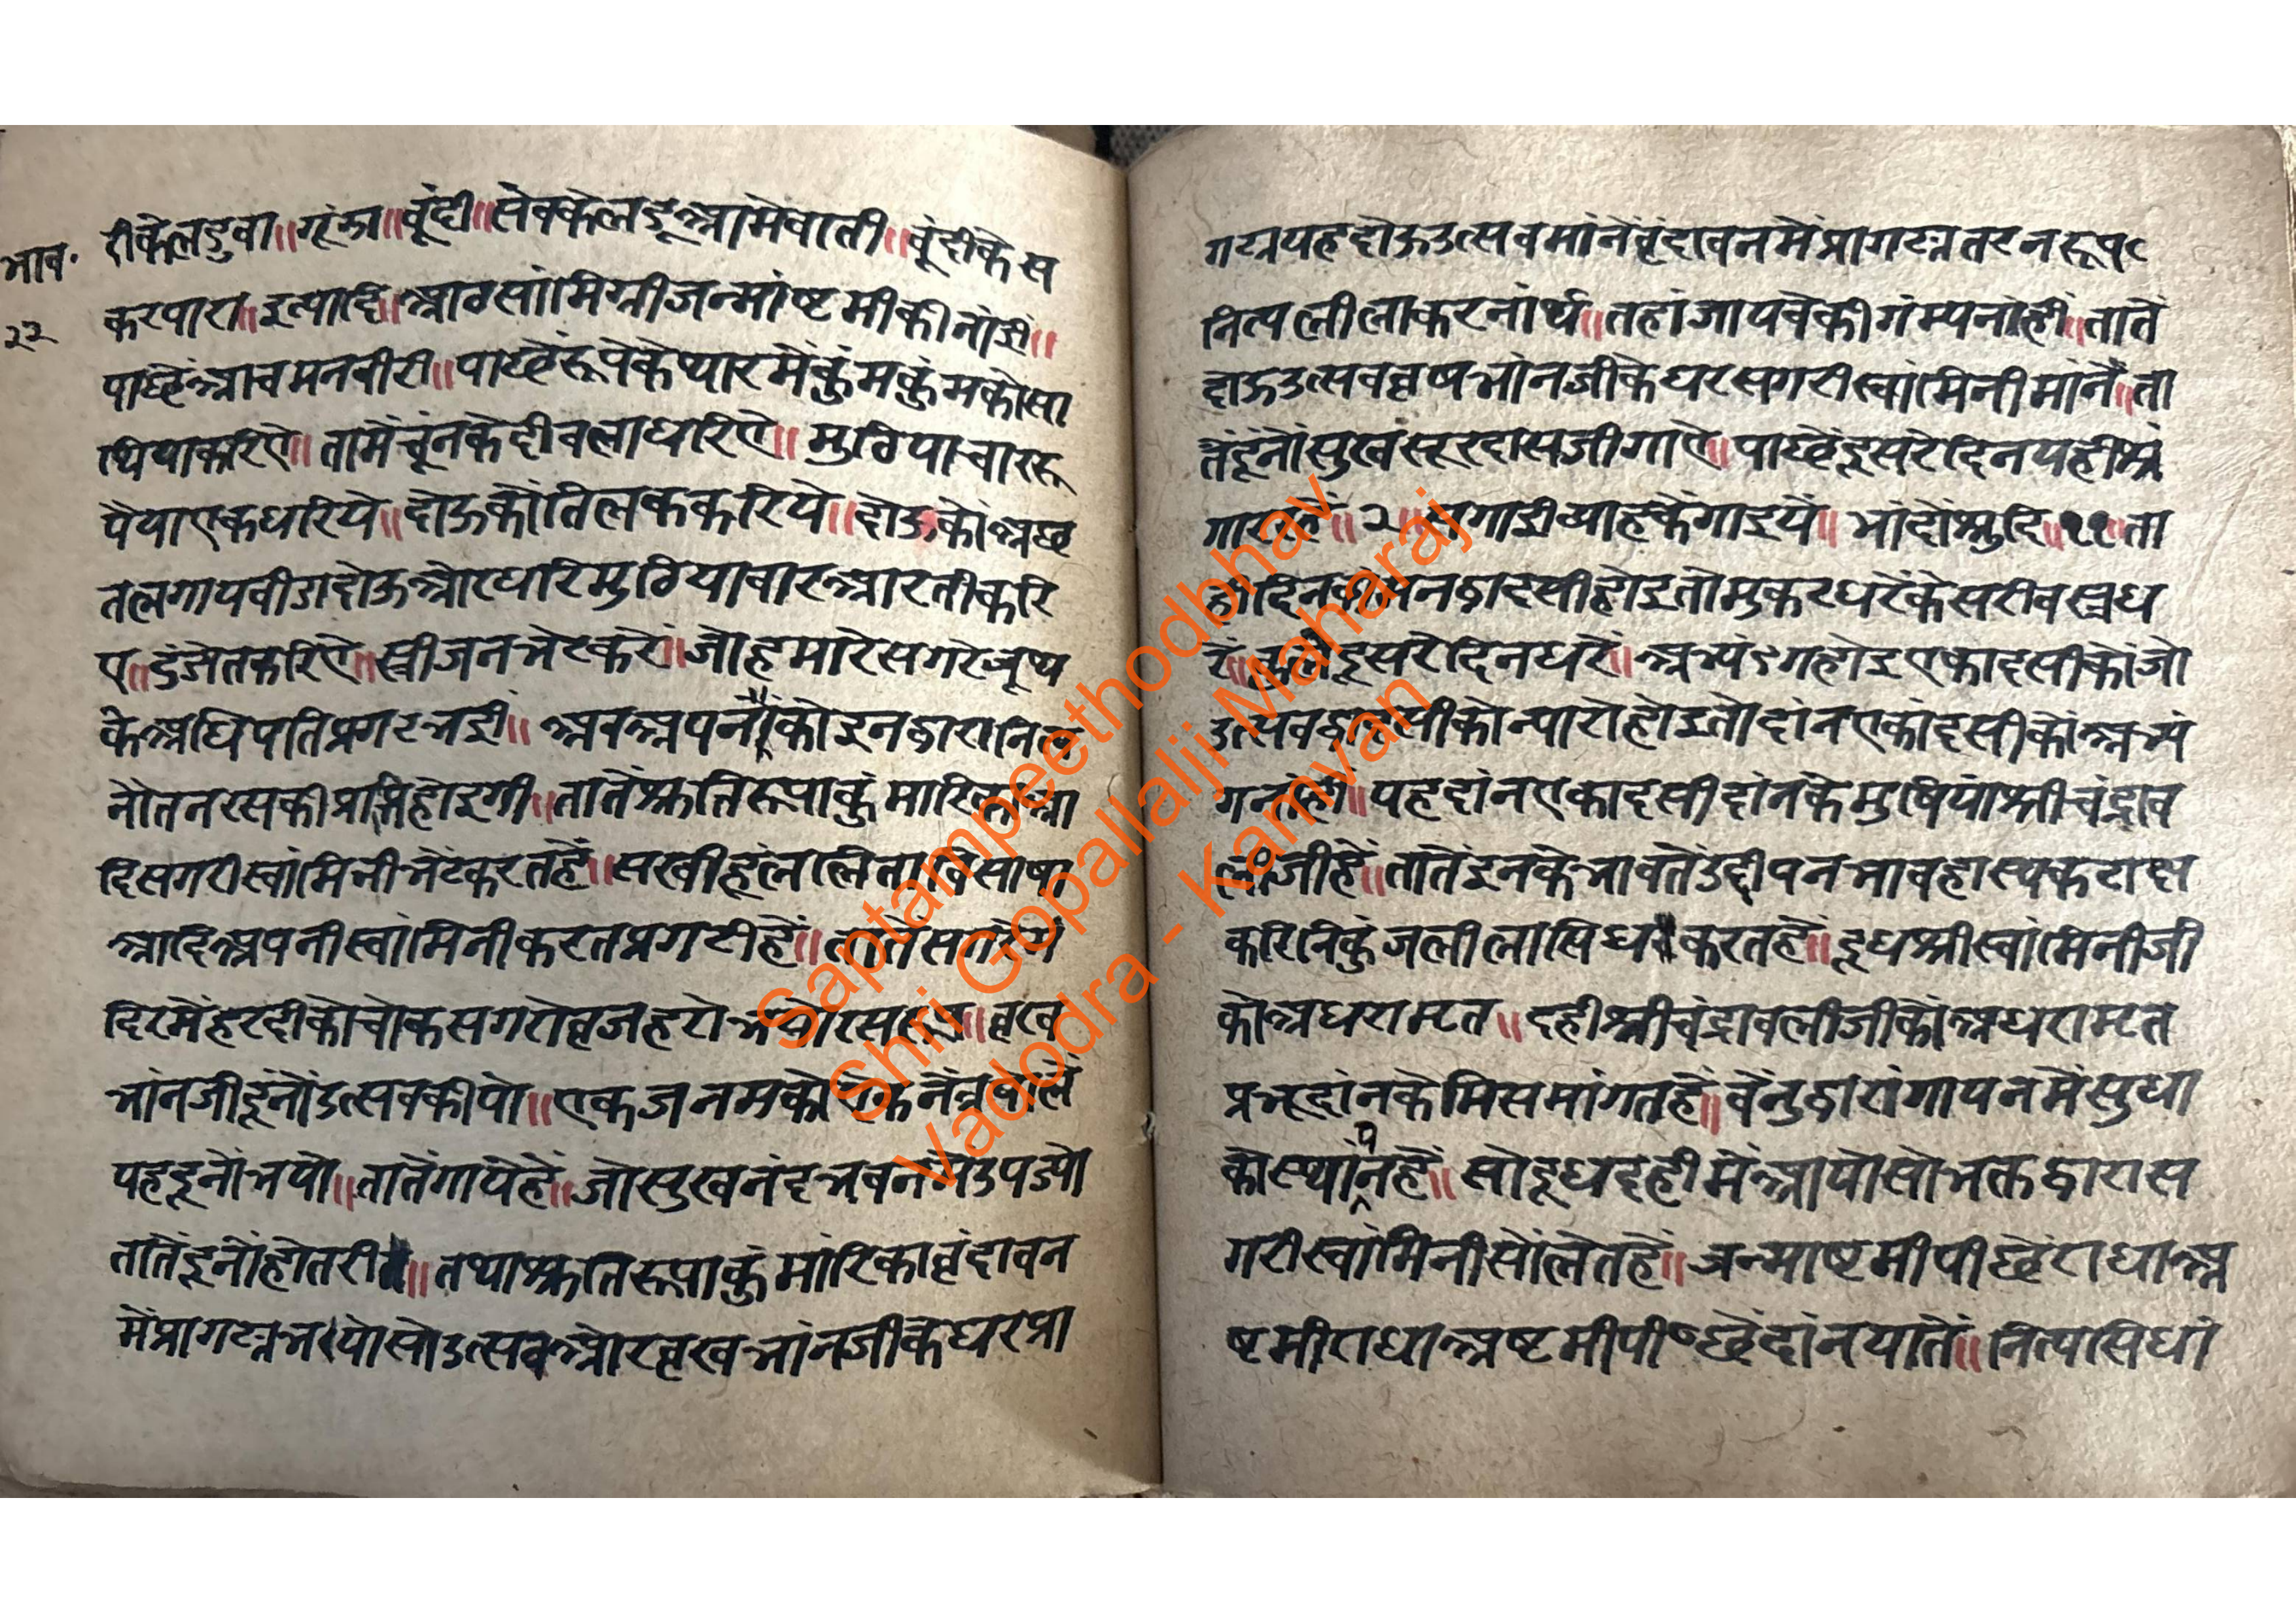 भाव॰
२२
रीकेलडुवा॥गूंझा॥बूंदी॥सेवकेलडूआमेवाती॥बूंदीकेस
करपारा॥इत्यादि॥आठसांमिग्रीजन्मांष्टमीकीनांई॥
पाछेंआचमनबीरी॥पाछेंरूपेकेथारमेंकुंमकुंमकोसा
थियाकरिऐ॥तामेंचूंनकेदीवलाधरिऐ॥मुठियाचाररु
पैयाएकधरिये॥दोऊकोंतिलककरिये॥दोऊकोंअछ
तलगायबीडादोऊओरधरिमुठियावारआरतीकरि
ऐ॥डंडोतकरिऐ॥स्त्रीजनभेटकरें॥जोहमारेसगरेजूथ
केअधिपतिप्रगटभई॥अबअपनोंकोंइनद्वारानित
नोतनरसकीप्राप्तिहोइगी॥तातेंश्रुतिरूपाकुंमारिकाआ
दिसगरीस्वांमिनीभेंटकरतहें॥सखीहूललिताविसाषा
आदिअपनीस्वांमिनीकरतप्रगटीहें॥तातेंसगरेमं
दिरमेंहरदीकोचोकसगरोव्रजहरो
भांनजीदूंनोंउत्सवकीयो॥एकजनमको
यहदूनोंभयो॥तातेंगायेहें॥जोसुखनंदभवनमेंउपज्यो
तातेंदूनोंहोतरी॥तथाश्रुतिरूपाकुंमारिकावृंदावन
मेंप्रागट्यभयोसोउत्सवओरवृखभांनजीकेघरप्रा
गट्ययहदोऊउत्सवमांनेंवृंदावनमेंप्रागट्यतटनरूप
नित्यलीलाकरनांर्थ॥तहांजायवेकीगंम्यनांहीं॥तातें
दोऊउत्सववृषभांनजीकेघरसगरीस्वांमिनीमांनें॥ता
तेंदूंनोंसुखसूरदासजीगाऐ॥पाछेंदूसरेदिनयहीश्रं
गाररहें॥२॥सगाईव्याहकेगाइयें॥भांदोंश्रुदि॥११॥ता
हीदिनवांमनद्वादसीहोइतोमुकटधरेंकेसरीवस्त्रध
रें॥नहींतोदूसरेदिनधरें॥अभ्यंगहोइएकादसीकोंजो
उत्सवद्वादसीकोन्यारोहोइतोदांनएकांदसीकोंअभ्यं
गनांहीं॥यहदांनएकादसीदांनकेमुषियांश्रीचंद्राव
लीजीहें॥तातेंइनकेभावतेंउद्दीपनभावहास्यकटाक्ष
करिनिकुंजलीलासिधकरतहें॥दूधश्रीस्वांमिनीजी
कोअधरामृत॥दहीश्रीचंद्रावलीजीकोंअधरामृत
प्रभूदांनकेमिसमांगतहें॥वेंनुद्वारागायनमेंसुधा
कोस्थांपनहें॥सोदूधदहीमेंआयोसोभक्तद्वारास
गरीस्वांमिनीसोंलेतहें॥जन्माष्टमीपीछेंराधाअ
ष्टमीराधाअष्टमीपीछेंदांनयातें॥नित्यसिधां
Saptampeethodbhav
Shri Gopallalji Maharaj
Vadodra - Kamvan